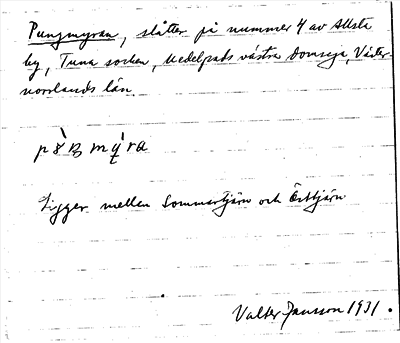 Pungmyran, slåtter på nummer 4 av Allsta
by, Tuna socken, Medelpads västra domsaga, Väster-
norrlands län.
Ligger mellan Sommartjärn och Östtjärn
Valter Jansson 1931.